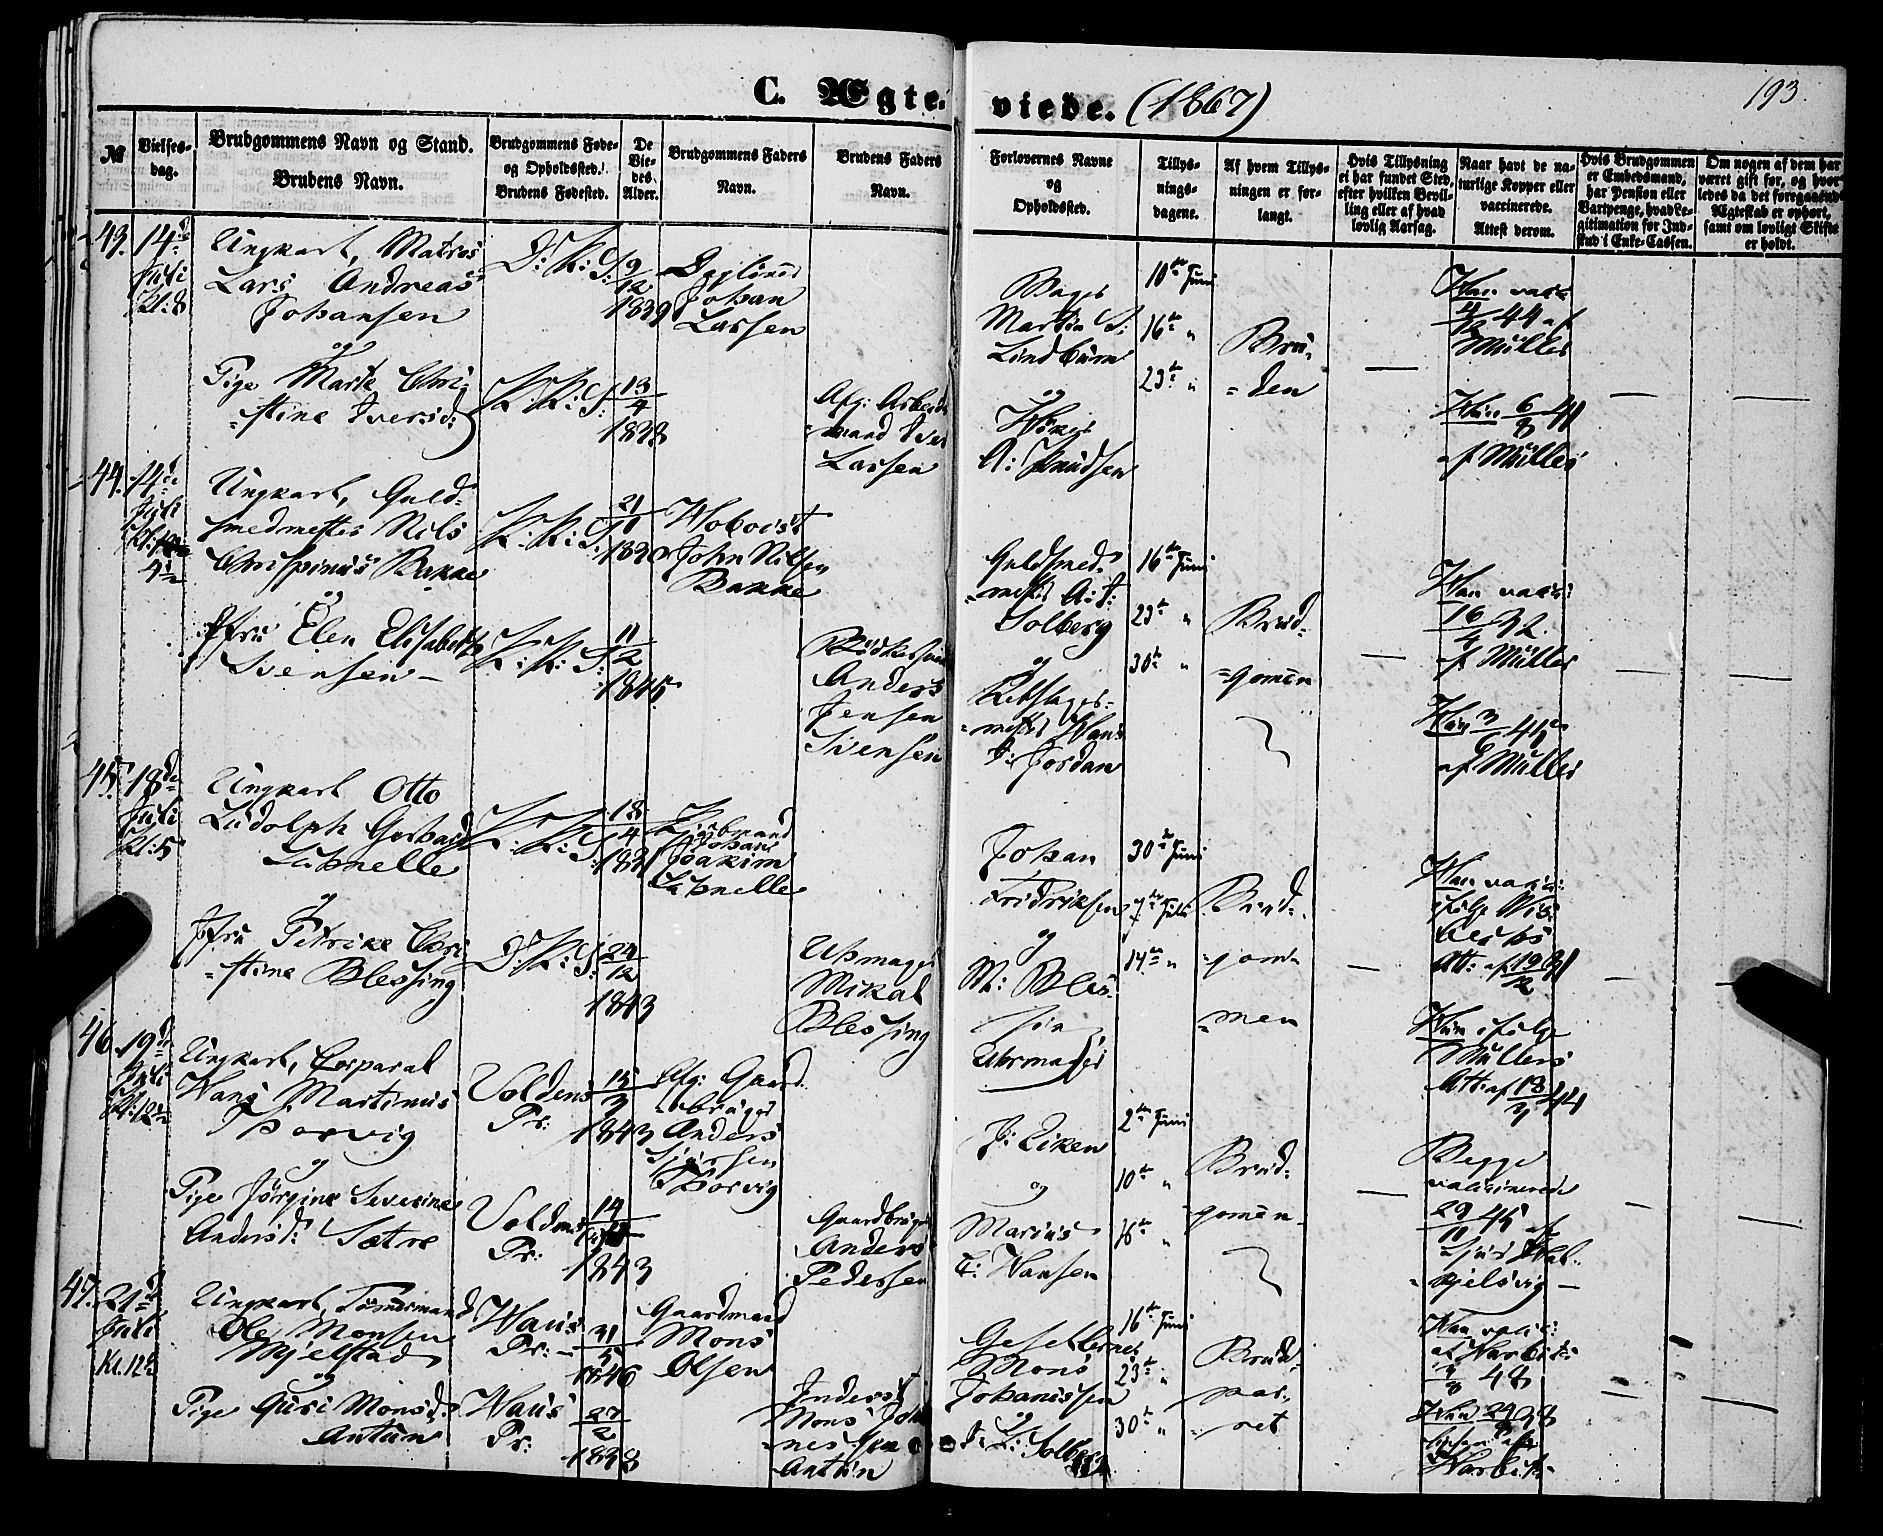 C. Ægte-
viede. (1867)
193.
№
Vielses-
dag.
Brudgommens Navn og Stand.
Brudens Navn.
Brudgommens Føde-
og Opholdssted.
Brudens Fødested.
De
Vie-
des
Alder.
Brudgommens Faders
Navn.
Brudens Faders
Navn.
Forlovernes Navne
og
Opholdssted.
Tillys-
nings-
dagene.
Af hvem Tillys-
ningen er for-
langt.
Hvis Tillysning
ei har fundet Sted,
efter hvilken Bevil-
ling eller af hvad
lovlig Aarsag.
Naar havt de na-
turlige Kopper eller
vaccinerede.
Attest derom.
Hvis Brudgommen
er Embedsmand,
har Pension eller
Vartpenge, hvad Le-
gitimation for Ind-
skud i Enke-Cassen.
Om nogen af dem har
været gift før, og hvor-
ledes da det foregaaende
Ægteskab er ophørt,
samt om lovligt Skifte
er holdt.
43.
14de
Juli
Kl: 8
Ungkarl, Matros
Lars Andreas
Johansen
og
Pige Marte Chri-
stine Iversd:
D: K: S:
9/12
1839
K: K: S:
13/4
1838
Daglønner
Johan
Larsen
Afg: Arbeids-
mand Iver
Larsen
Bager
Martin S:
Lindbürn
og
A: Knudsen
10de Juni
16de "
23de "
Bru-
-den
Han vacc:
44 af
Müller
Hun 6/8 41
af Müller
44.
14de
Juli
Ungkarl, Guld-
smedmester Nils
Chrispinus Bakke
og
Jfru Elen Elisabeth
Svensen -
K: K: S:
21/11
K: K: S:
11/2
1845
John Nilsen
Bakke
Anders
Jensen
Svensen
Guldsmed-
mester A: T:
Solberg
og
Rebslager-
mester Hans
J: Jordan
16de Juni
23de "
30de "
Brud-
-gomen
Han vacc:
16/4 32.
af Müller
af Müller
45.
18de
Juli
Kl: 5
Ungkarl Otto
Ludolph Gerhard
Schnelle
og
Jfru Petrike Chri-
-stine Blessing
K: K: S:
18/4
D: K: S:
24/12
1843
Johan
Joakim
Schnelle
Uhrmager
Mikal
Blessing
Johan
Fridriksen
og
M: Bles-
sing
Uhrmager
30de Juni
7de Juli
14de "
Brud-
-gom-
-men
Hun ifølge
Müllers
Att: af
46.
19de
Juli
Ungkarl, Corporal
Hans Martinus
Thorvig
og
Pige Jørgine Severine
Andersd: Sætre
Voldens
Pr:
15/3
1843
Voldens
Pr:
1843
Afg: Gaard-
-bruger
Anders
Thorvig
Gaardbruger
Anders
Pedersen
J: Eiken
og
Marius
T: Hansen
2den Juni
10de "
16de "
Brud-
gomen
Begge
vaccinerede
29/11 45 af
47.
21de
Juli
Kl. 12½
Ungkarl, Tømermand
Ole Monsen
Mjelstad
og
Pige Guri Monsd:
Antun
Haus
Pr: -
31/5
1846
Haus
Pr:
27/2
1838
Gaardmand
Mons
Olsen
Inderst
Mons Joha-
nessen
Antun
Mons
Johannessen
og
Solberg
16de Juni
23de "
30de "
Brude-
par-
ret